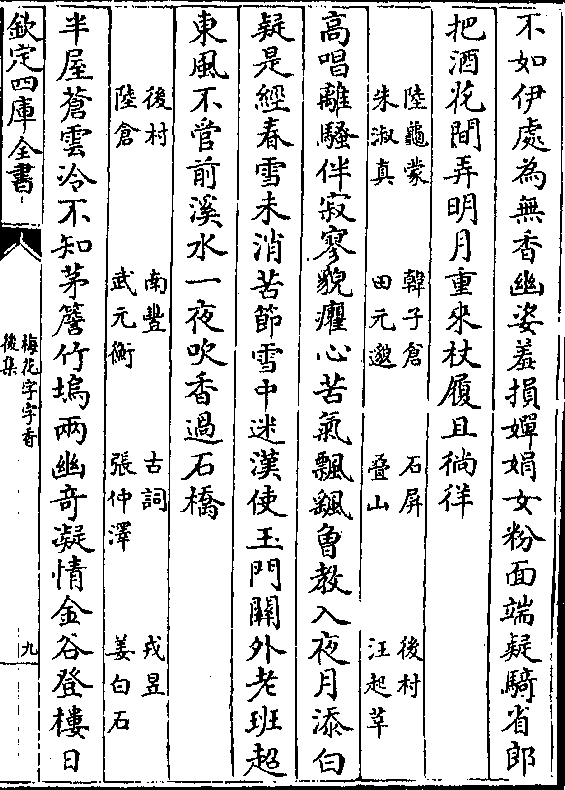 不如伊處為無香幽姿羞損嬋娟女粉面端疑騎省郎
把酒花間弄明月重來杖履且徜徉
陸龜蒙　韓子倉　石屏　後村
朱淑真　田元邈　疊山　汪起莘
高唱離騷伴寂寥貌癯心苦氣飄飖曾教入夜月添白
疑是經春雪未消苦節雪中迷漢使玉門關外老班超
東風不管前溪水一夜吹香過石橋
後村　南豐　古詞　戎昱
陸倉　武元衡　張仲澤　姜白石
半屋蒼雲冷不知茅簷竹塢兩幽奇凝情金谷登樓日
欽定四庫全書
梅花字字香
後集
九